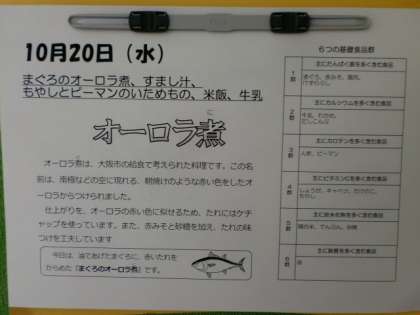 10月20日（水）
まぐろのオーロラ煮、すまし汁、
もやしとピーマンのいためもの、米飯、牛乳
オーロラ煮
に
オーロラ煮は、大阪市の給食で考えられた料理です。この名
前は、南極などの空に現れる、朝焼けのような赤い色をしたオ
ーロラからつけられました。
仕上がりを、オーロラの赤い色に似せるため、たれにはケチ
ャップを使っています。また、赤みそと砂糖を加え、たれの味
つけを工夫しています
今日は、油であげたまぐろに、赤いたれを
からめた「まぐろのオーロラ煮」です。
６つの基礎食品群
1群
主にたんぱく質を多く含む食品
まぐろ、赤みそ、鶏肉、
けずりぶし
2群
主にカルシウムを多く含む食品
牛乳、わかめ、
だしこんぶ
3群
主にカロテンを多く含む食品
人参、ピーマン
4群
主にビタミンCを多く含む食品
しょうが、キャベツ、
もやし
5群
主に炭水化物を多く含む食品
精白米、でんぷん、砂糖
6群
主に脂質を多く含む食品
油